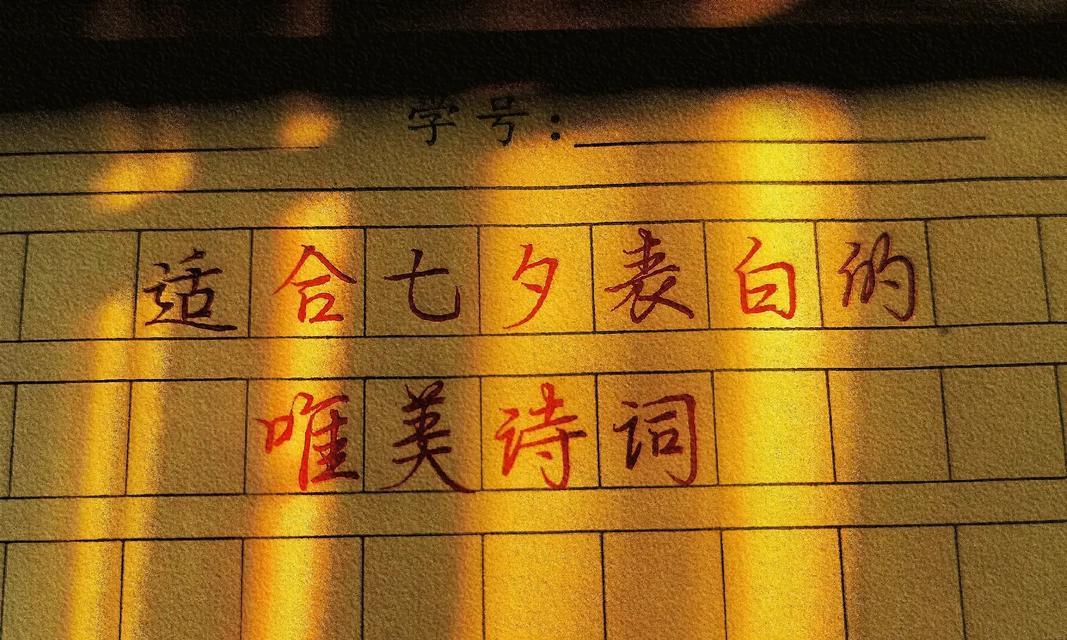 学号：
适合七夕表白的
唯美诗词